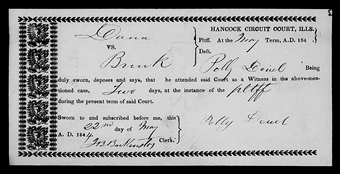 HANCOCK CIRCUIT COURT, ILLS.
Dana
VS.
Brink
Pltff. At the May Term, A.D. 184
Deft.
Polly Deuel Being
duly sworn, deposes and says, that he attended said Court as a Witness in the above-men-
tioned case, Two days, at the instance of the pltff
during the present term of said Court.
Sworn to and subscribed before me, this
22nd day of May
A. D. 184
Clerk.
Polly Deuel